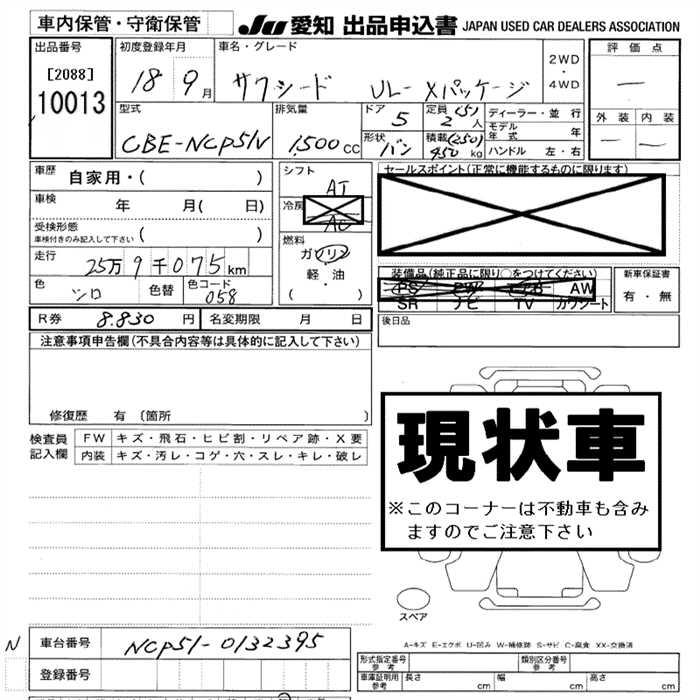 車内保管・守衛保管
JU 愛知 出品申込書 JAPAN USED CAR DEALERS ASSOCIATION
出品番号
[2088]
10013
初度登録年月
18 9月
車名・グレード
サクシード UL-Xパッケージ
2WD
・
4WD
評価点
—
外装 内装
— —
型式
CBE-NCP51V
排気量
1,500 CC
ドア
5
形状
バン
定員 (5)
2人
積載 (250)
450 kg
ディーラー・並行
モデル年式 年
ハンドル 左・右
車歴
自家用・( )
車検 年 月( 日)
受検形態
車検付きのみ記入して下さい ( )
走行
25万9千075km
色
シロ
色替
色コード
058
シフト
AT
冷房
AC
燃料
ガソリン
軽・油
( ・ )
セールスポイント(正常に機能するものに限ります)
装備品(純正品に限り○をつけてください)
PS PW エアB AW
SR ナビ TV カワシート
新車保証書
有・無
R券 8.830 円
名変期限 月 日
後日品
注意事項申告欄(不具合内容等は具体的に記入して下さい)
修復歴 有 〔箇所 〕
検査員
記入欄
FW キズ・飛石・ヒビ割・リペア跡・X要
内装 キズ・汚レ・コゲ・穴・スレ・キレ・破レ
現状車
※このコーナーは不動車も含み
ますのでご注意下さい
スペア
A-キズ E-エクボ U-凹み W-補修跡 S-サビ C-腐食 XX-交換済
N
車台番号 NCP51-0132395
登録番号
形式指定番号
参考
類別区分番号
参考
車庫証明用
参考
長さ cm 幅 cm 高さ cm